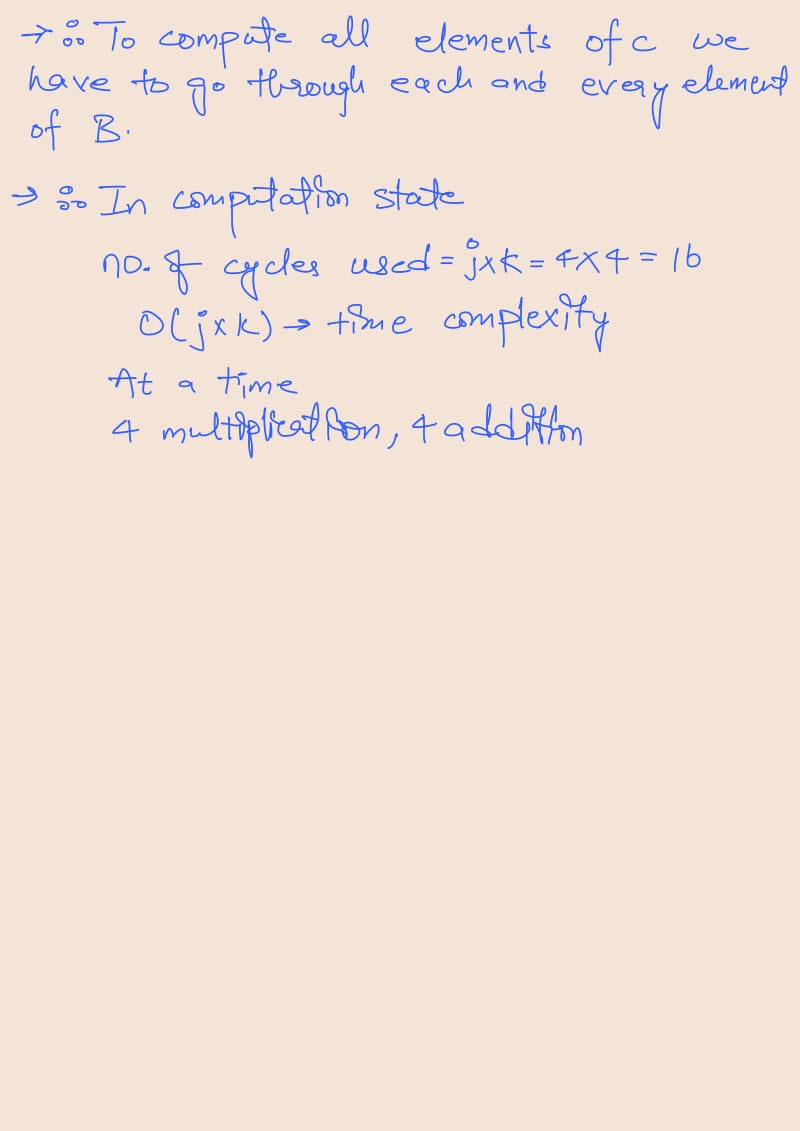 → ∴ To compute all elements of c we
have to go through each and every element
of B.
→ ∴ In computation state
no. of cycles used = j×k = 4×4 = 16
O(j×k) → time complexity
At a time
4 multiplication, 4 addition